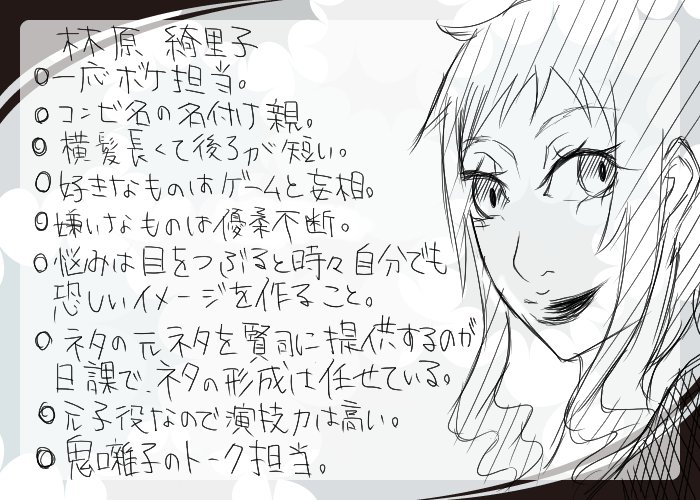 林原 綺里子
○一応ボケ担当。
○コンビ名の名付け親。
○横髪長くて後ろが短い。
○好きなものはゲームと妄想。
○嫌いなものは優柔不断。
○悩みは目をつぶると時々自分でも
恐しいイメージを作ること。
○ネタの元ネタを賢司に提供するのが
日課で、ネタの形成は任せている。
○元子役なので演技力は高い。
○鬼囃子のトーク担当。